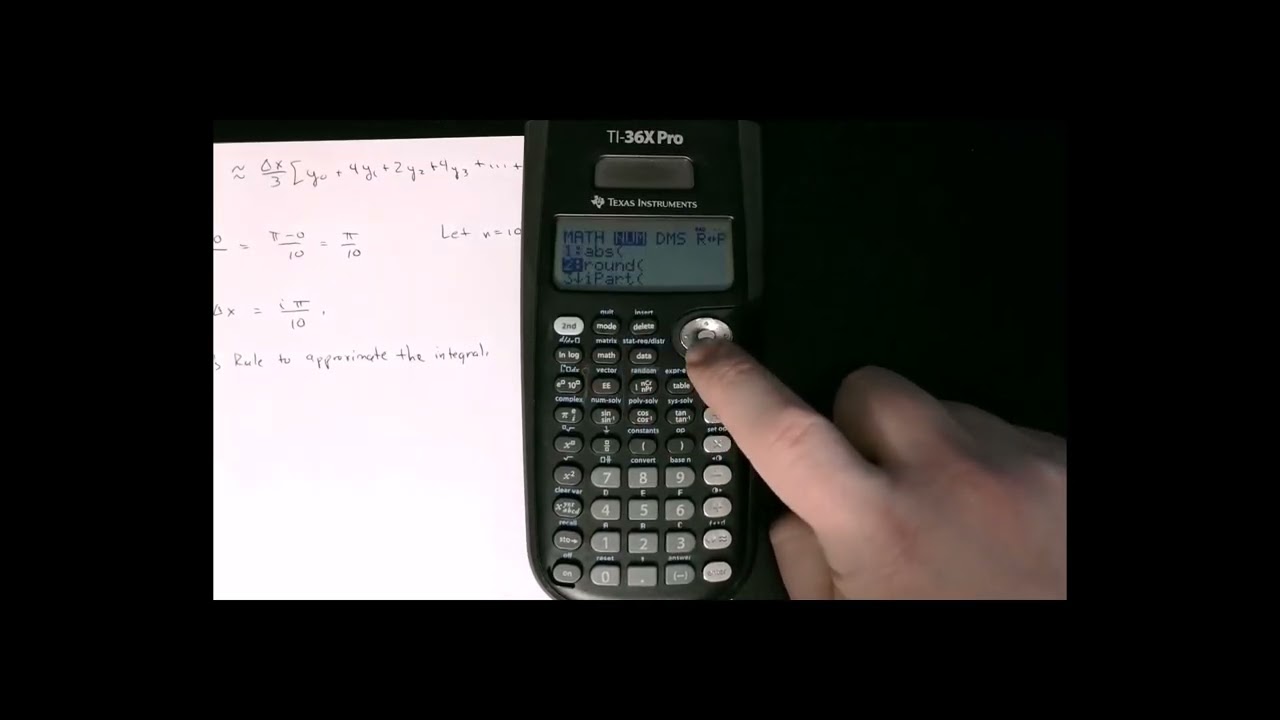 ≈ Δx/3 [y₀ + 4y₁ + 2y₂ + 4y₃ + ... +
0 = π-0/10 = π/10 Let n=10
Δx = iπ/10 .
Rule to approximate the integral.
TI-36X Pro
TEXAS INSTRUMENTS
MATH NUM DMS R↔P
1:abs(
2:round(
3↓iPart(
quit insert
2nd mode delete
d/dx□ matrix stat-reg/distr
ln log math data
vector random expr-e
e□ 10□ EE nCr nPr table
complex num-solv poly-solv sys-solv
π e i sin sin⁻¹ cos cos⁻¹ tan tan⁻¹
constants op set op
x□ ( ) ×
√ convert base n
x² 7 8 9 −
clear var D E F
x yzt abcd 4 5 6 +
recall A B C f◂▸d
sto→ 1 2 3
off reset , answer
on 0 . (−) enter